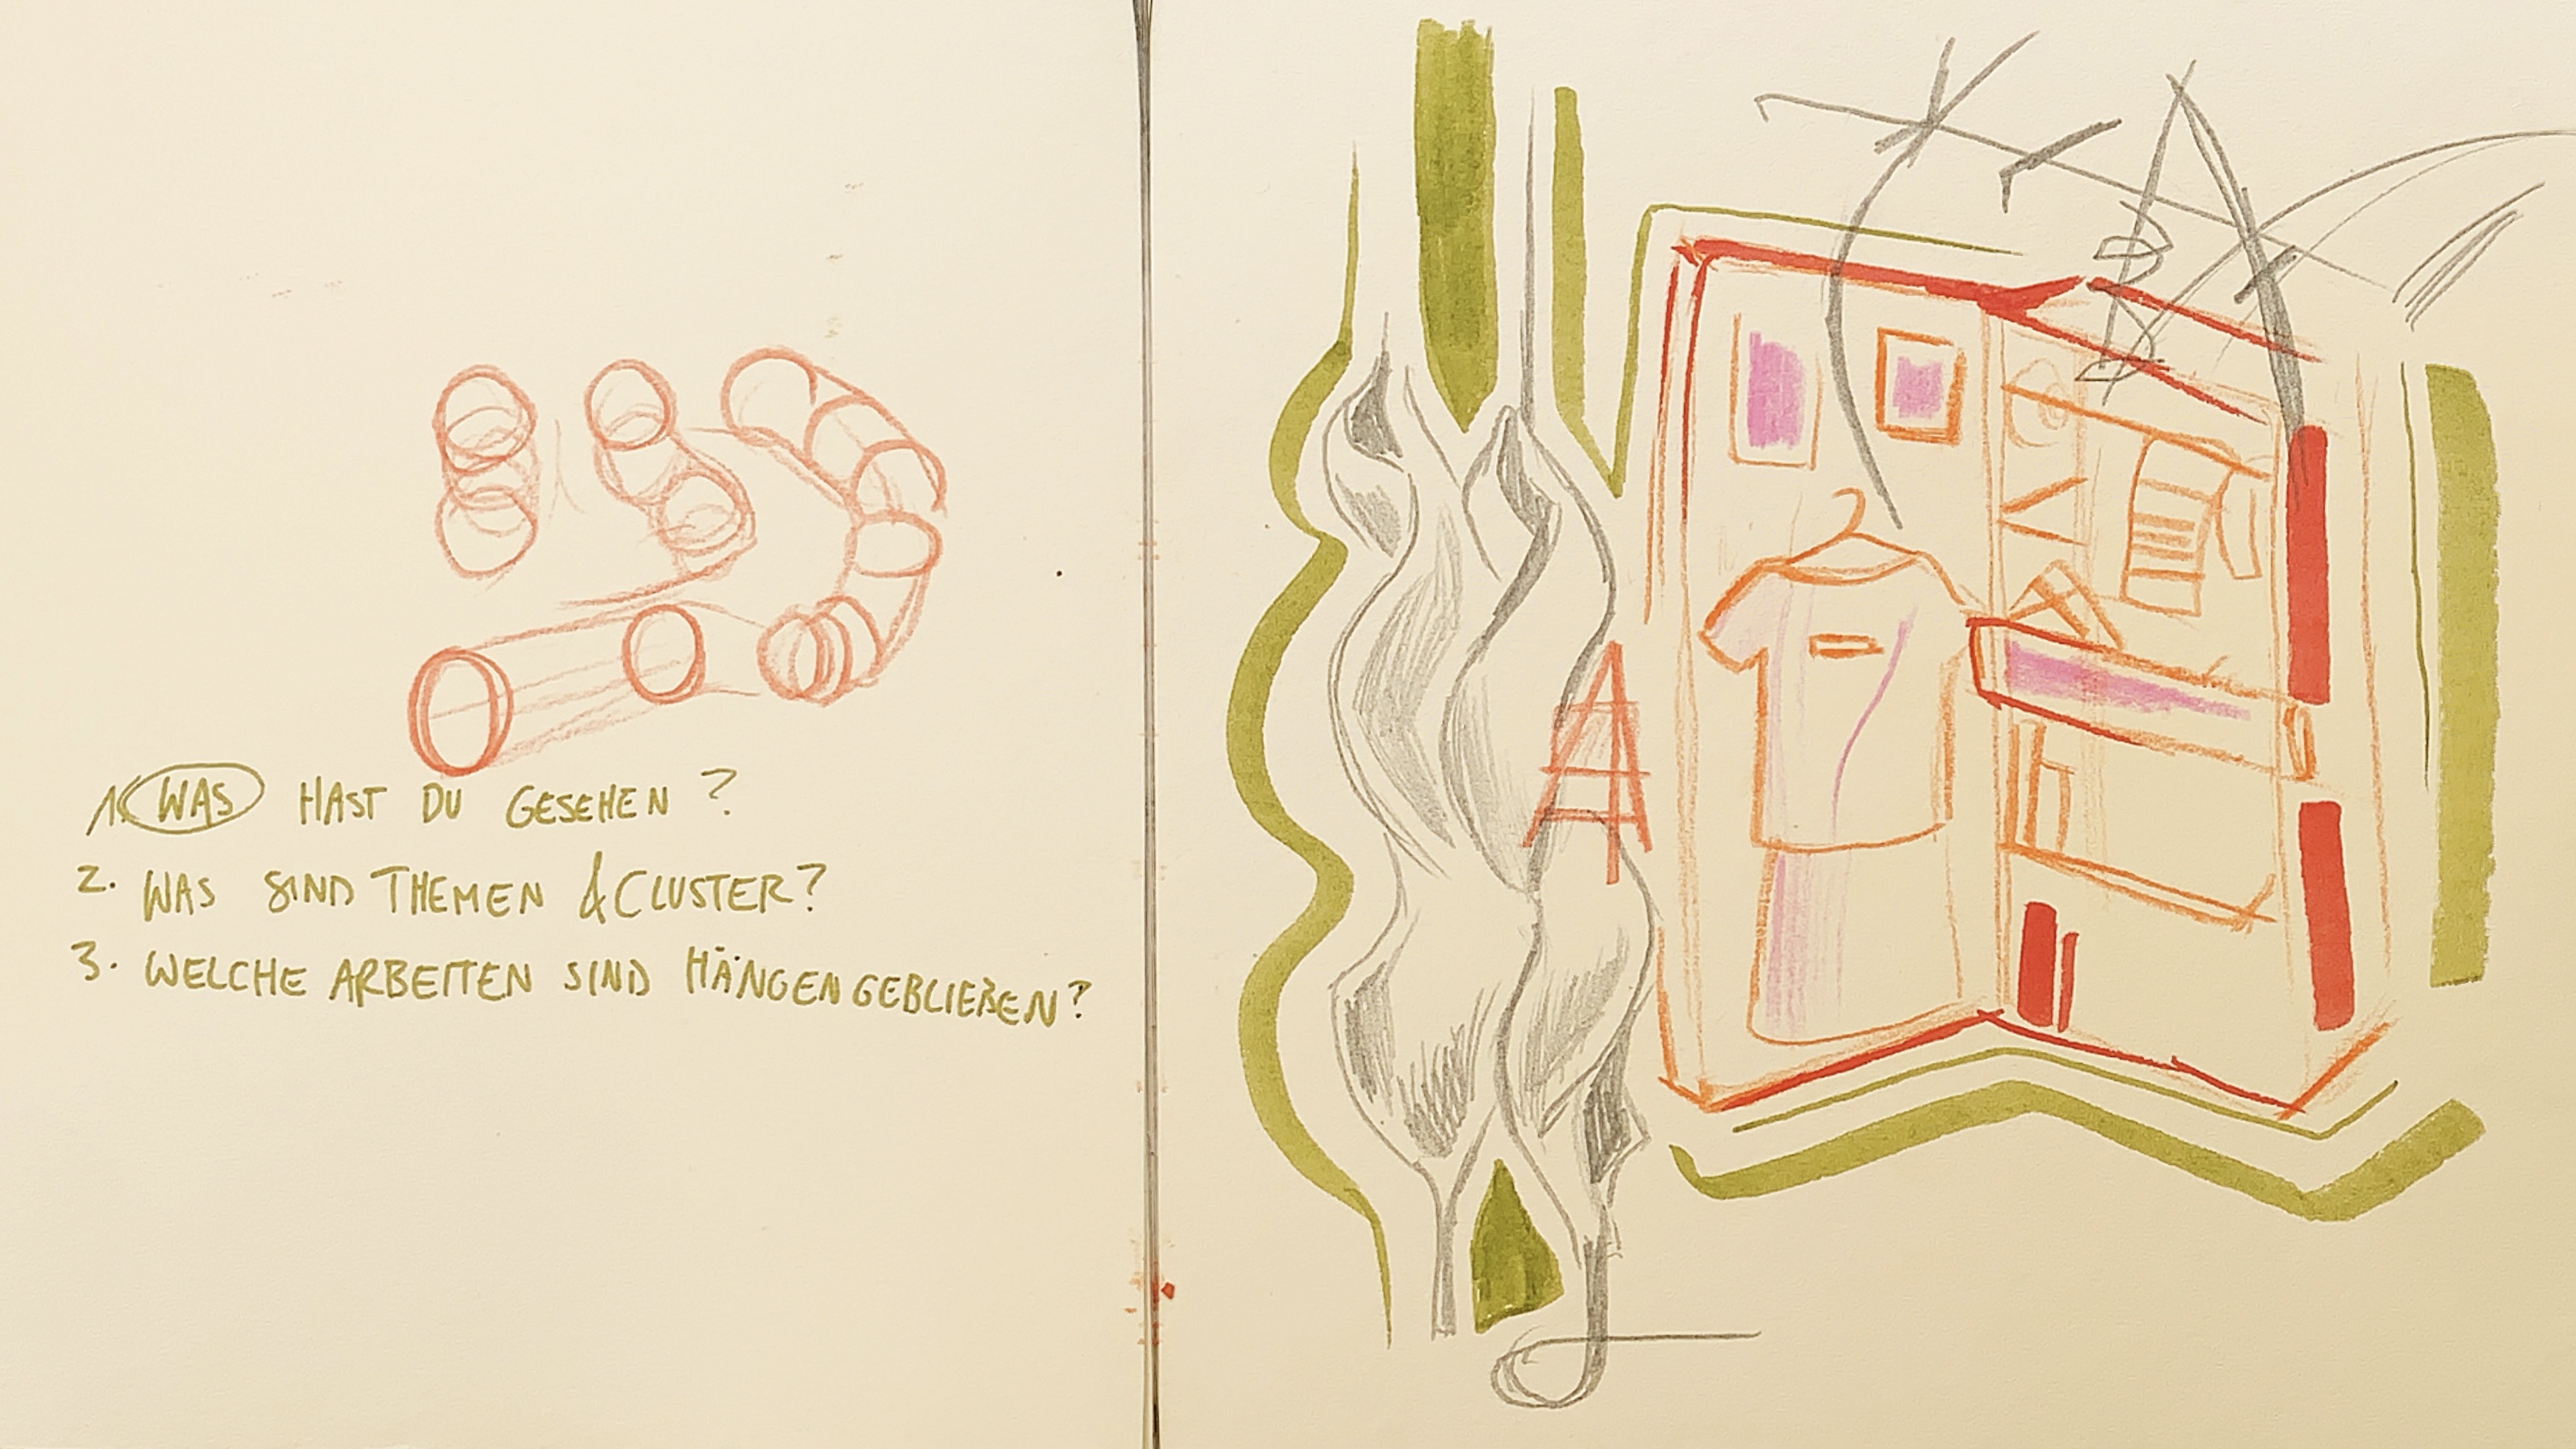 1. WAS HAST DU GESEHEN?
2. WAS SIND THEMEN & CLUSTER?
3. WELCHE ARBEITEN SIND HÄNGENGEBLIEBEN?